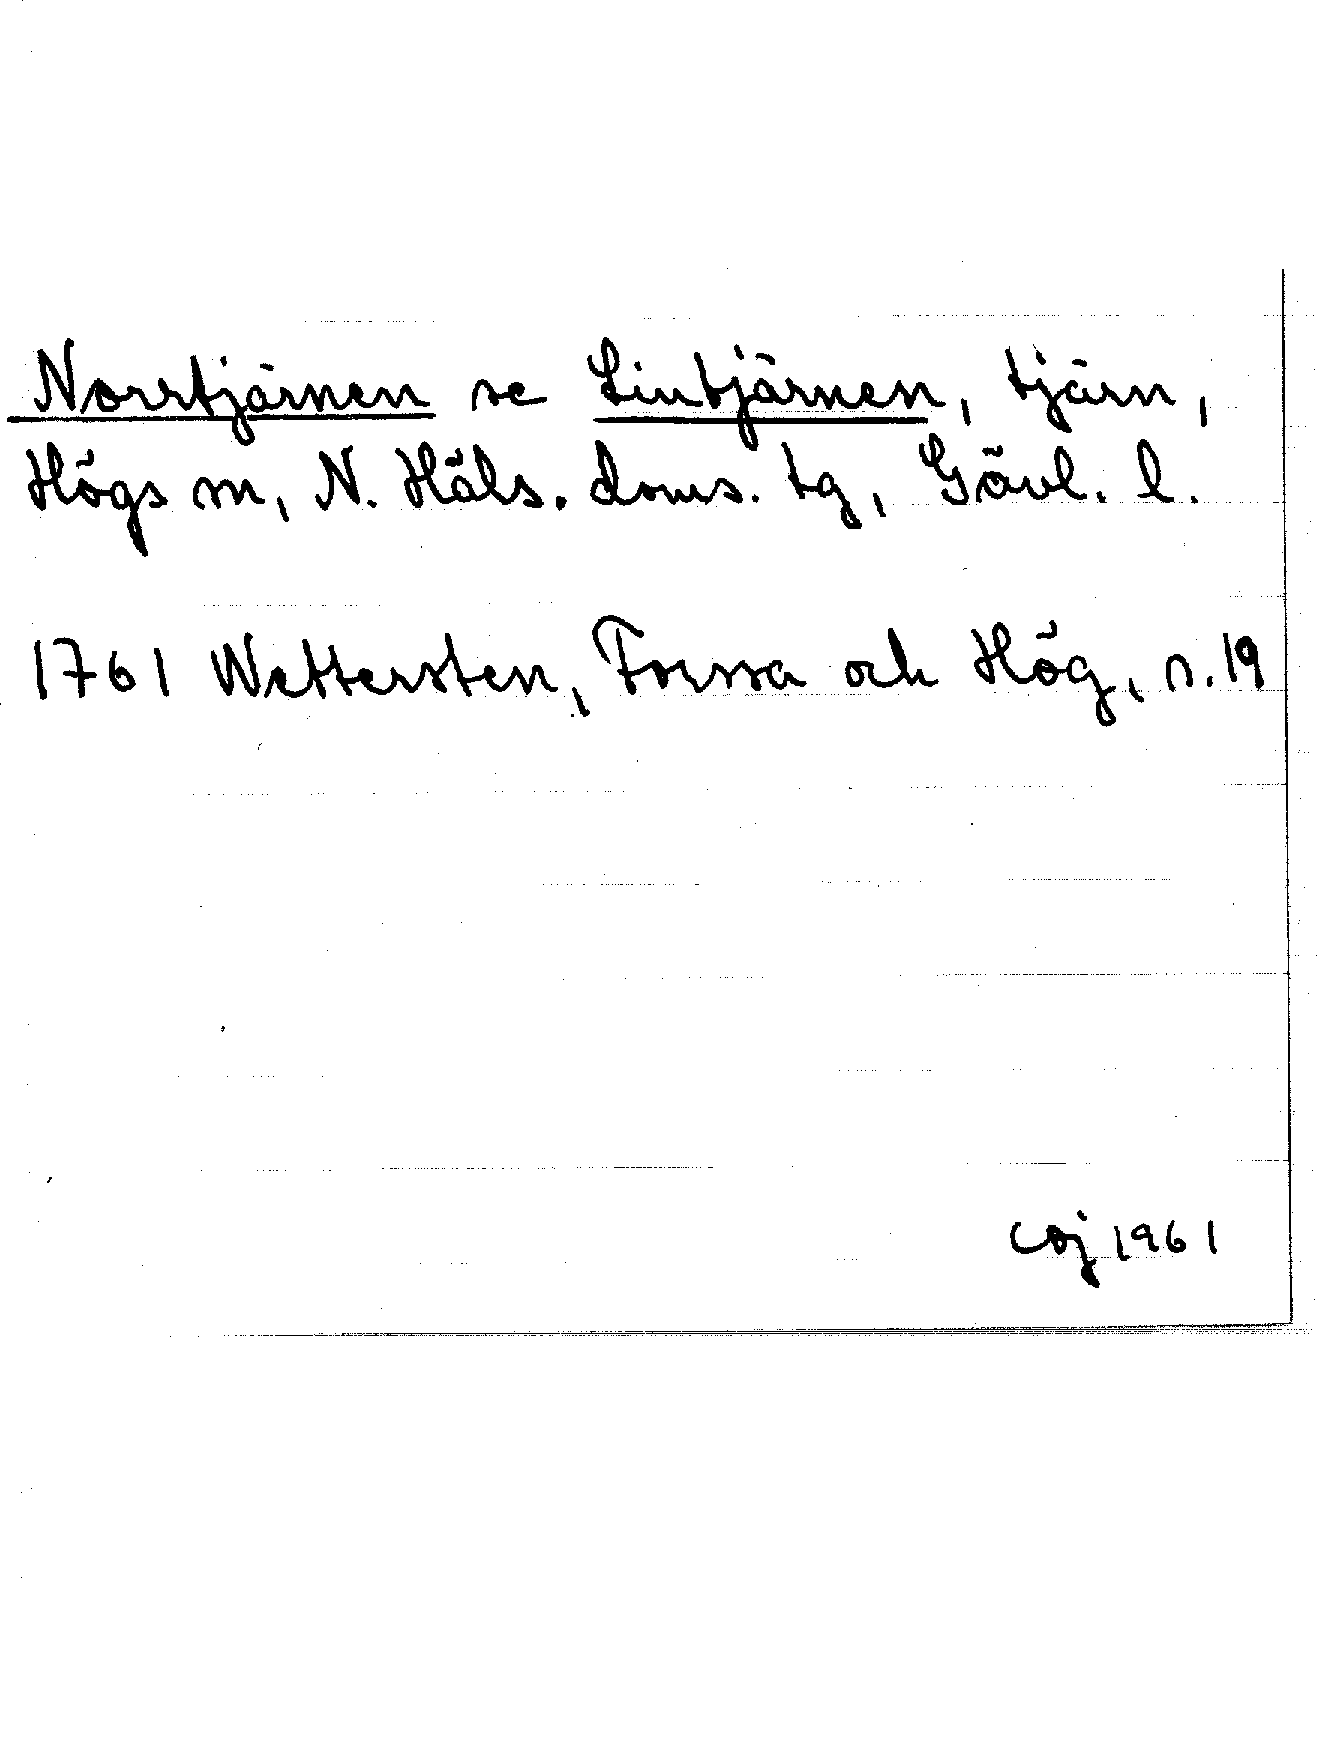 Norrtjärnen se Lintjärnen, tjärn,
Högs sn, N. Häls. doms. tg, Gävl. l.
1761 Wettersten, Forssa och Hög, s. 19
COJ 1961